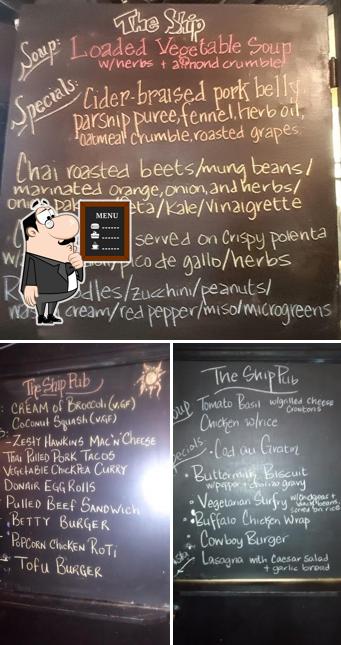 The Ship
Soup: Loaded Vegetable Soup
w/herbs + almond crumble
Specials: Cider-braised pork belly
parsnip puree, fennel, herb oil,
oatmeal crumble, roasted grapes
Chai roasted beets/mung beans/
marinated orange, onion, and herbs/
eta/Kale/Vinaigrette
MENU
served on Crispy polenta
pico de gallo/herbs
dles/zucchini/peanuts/
cream/red pepper/miso/microgreens
The Ship Pub
: CREAM of Broccoli (V.GF)
Coconut Squash (V.GF)
- Zesty Hawkins Mac'n'Cheese
Thai Pulled Pork Tacos
Vegetable Chickpea Curry
Donair Egg Rolls
Pulled Beef Sandwich
- Betty Burger
- Popcorn Chicken Roti
- Tofu Burger
The Ship Pub
Soup Tomato Basil w/grilled cheese
croutons
Chicken w/rice
Specials: • Cod au Gratin
• Buttermilk Biscuit
w/pepper + chorizo gravy
• Vegetarian Stirfry w/chickpeas +
served on rice
• Buffalo Chicken Wrap
• Cowboy Burger
• Lasagna with Caesar salad
+ garlic bread